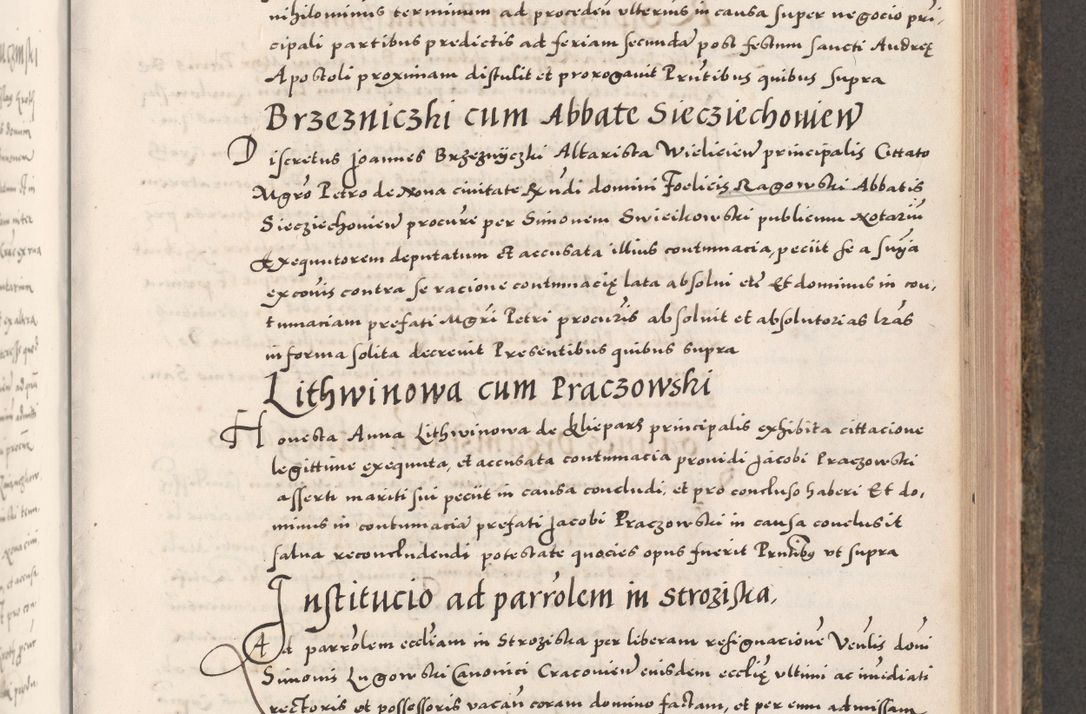 nihilominus terminum ad proceden ulterius in causa super negocio prin-
cipali partibus predictis ad feriam secunda post festum sancti Andreę
Apostoli proximam distulit et prorogavit Pruntibus quibus supra
Brzezniczki cum Abbate Siecziechouien
Discretus Joannes Brzeznyczki Altarista Wielicien principalis Cittato
Mgro Petro de Nova civitate Rndi domini Foelicis Ragowski Abbatis
Siecziechouien procure per Simonem Swieikowski publicum Notariu
Exequutorem deputatum et accusata illius contumacia, peciit se a suya
ex covis contra se racione contumacię lata absolui etc Et dominus in con-
tumaciam prefati Mgri Petri procuris absoluit et absolutorias lras
in forma solita decrevit Presentibus quibus supra
Lithwinowa cum Praczowski
Honesta Anna Lithwinowa de Kliepars principalis exhibita cittacione
legittime exequuta, et accusata contumacia providi Jacobi Praczowski
asserti mariti sui peciit in causa concludi, et pro concluso haberi Et do-
minus in contumacia prefati Jacobi Praczowski in causa conclusit
salua reconcludendi potestate quocies opus fuerit Pruntiby ut supra
Institucio ad parrolem in Stroziska.
Ad parrolem eccliam in Stroziska per liberam resignacione Venlis domi
Simonis Lugowski Canonici Cracovien eiusdem ecclię ultimi ac immediati
rectoris et possessoris vacan coram domino factam, et per eum admissam